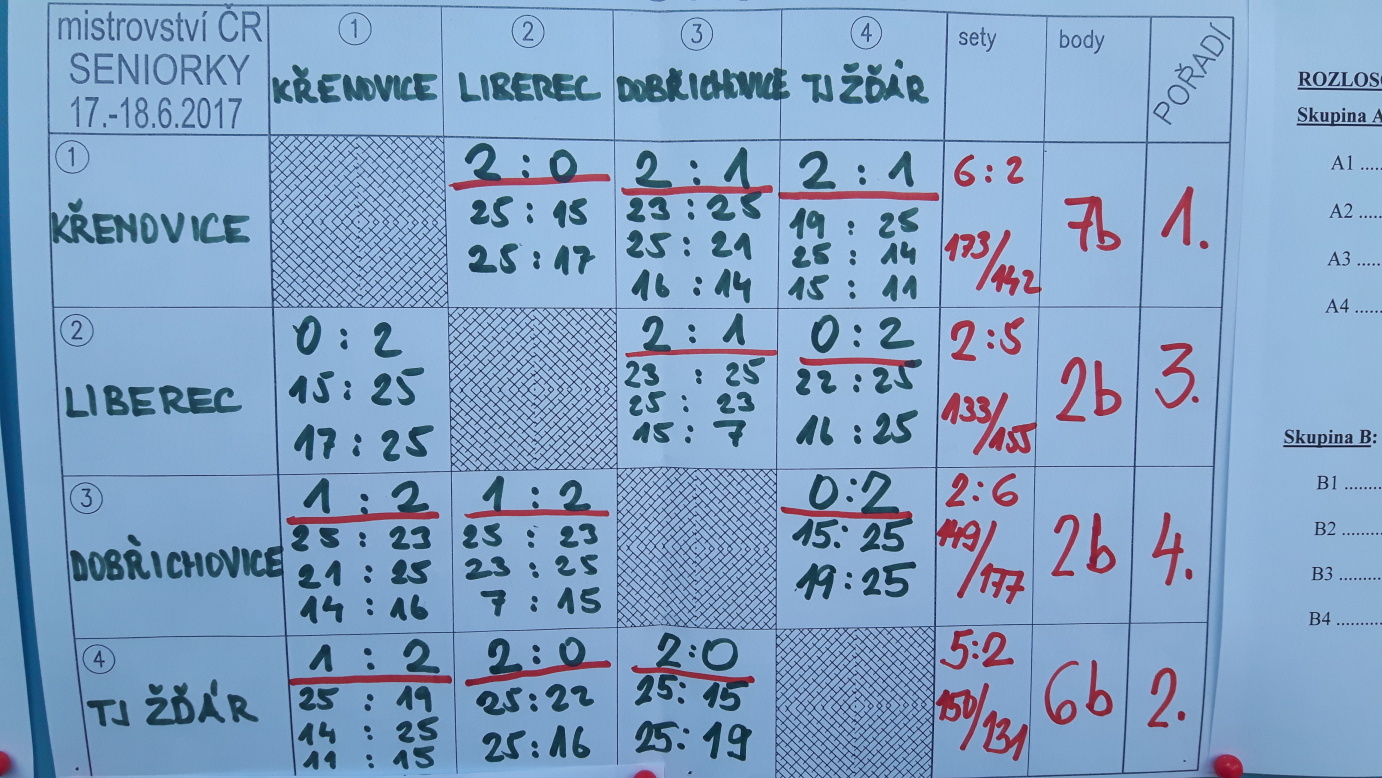 mistrovství ČR
SENIORKY
17.-18.6.2017
1 2 3 4 sety body POŘADÍ
KŘENOVICE LIBEREC DOBŘICHOVICE TJ ŽĎÁR
1
KŘENOVICE
2 : 0
25 : 15
25 : 17
2 : 1
23 : 25
25 : 21
16 : 14
2 : 1
19 : 25
25 : 14
15 : 11
6 : 2
173/142
7b
1.
2
LIBEREC
0 : 2
15 : 25
17 : 25
2 : 1
23 : 25
25 : 23
15 : 7
0 : 2
22 : 25
16 : 25
2 : 5
133/155
2b
3.
3
DOBŘICHOVICE
1 : 2
25 : 23
21 : 25
14 : 16
1 : 2
25 : 23
23 : 25
7 : 15
0:2
15: 25
19:25
2:6
149/177
2b
4.
4
TJ ŽĎÁR
1 : 2
25 : 19
14 : 25
11 : 15
2:0
25:22
25:16
2:0
25: 15
25: 19
5:2
150/131
6b
2.
Skupina A
A1 .....
A2 .....
A3 .....
A4 .....
Skupina B:
B1 ........
B2 ........
B3 ........
B4 ........